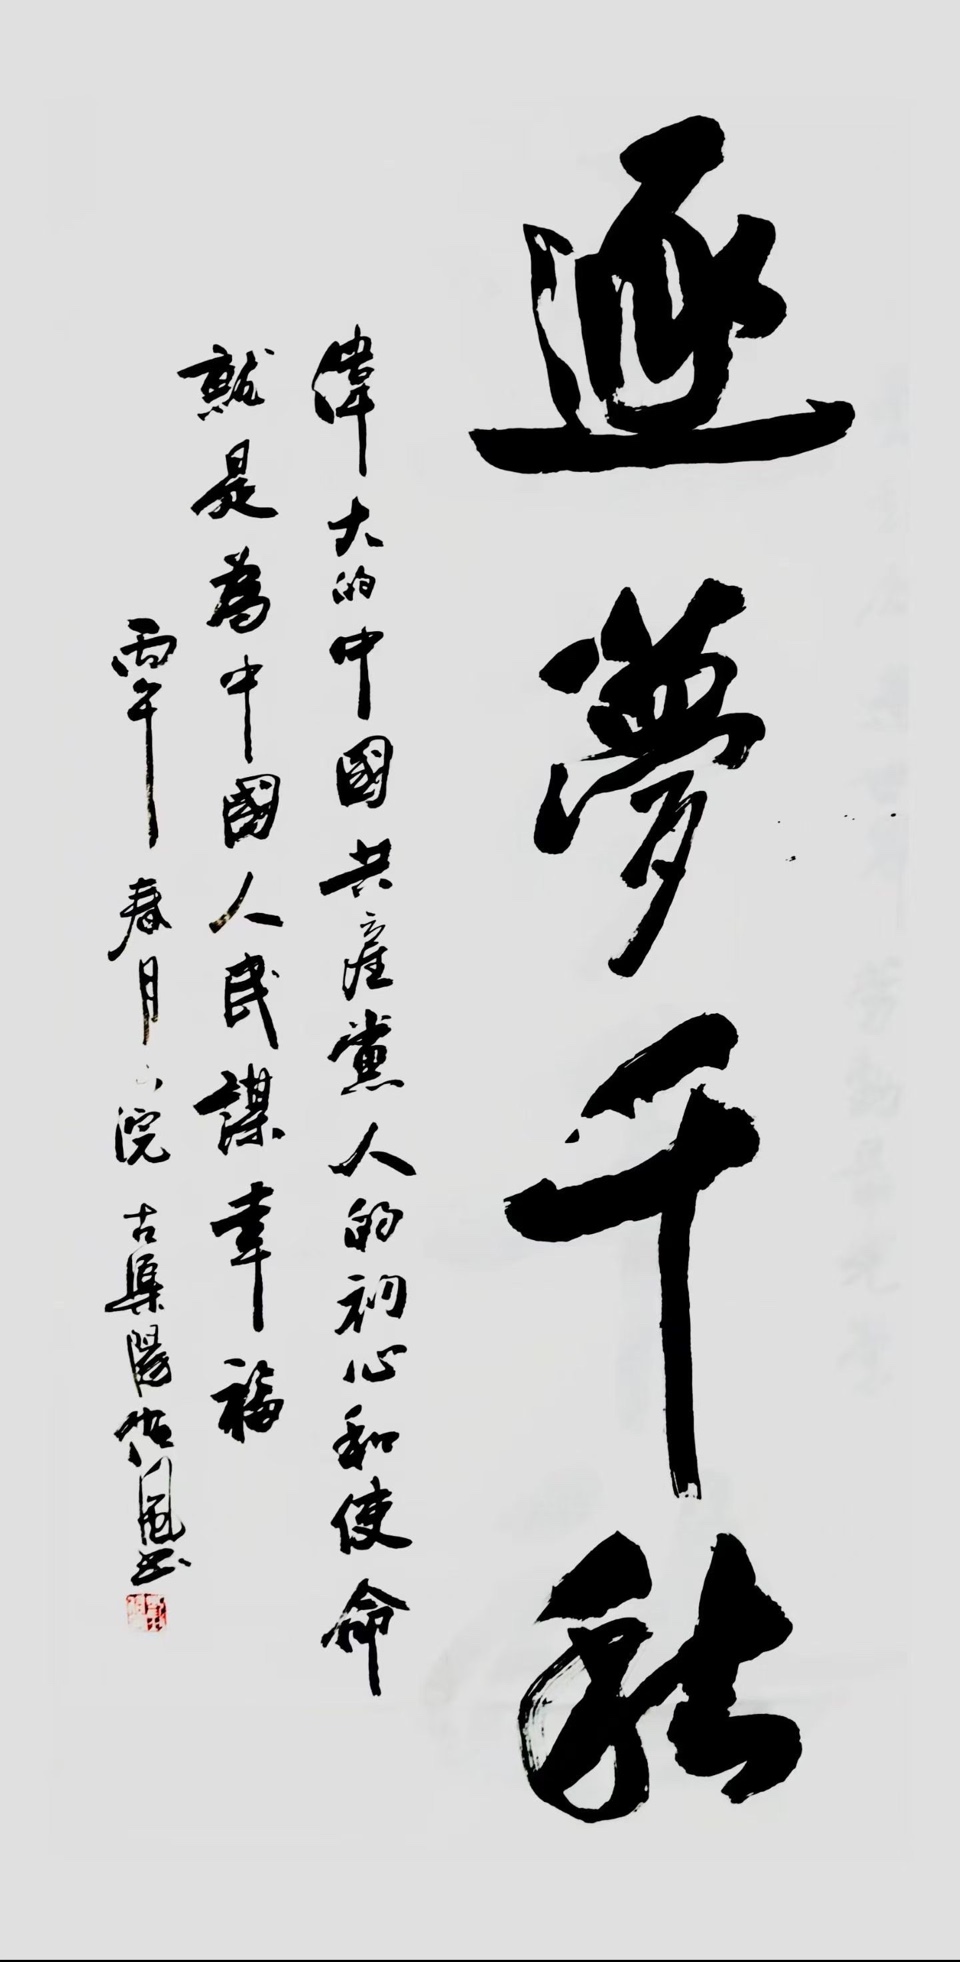 逐夢千
偉大的中國共產黨人的初心和使命
就是為中國人民謀幸福
丙午春月浣 古陽書